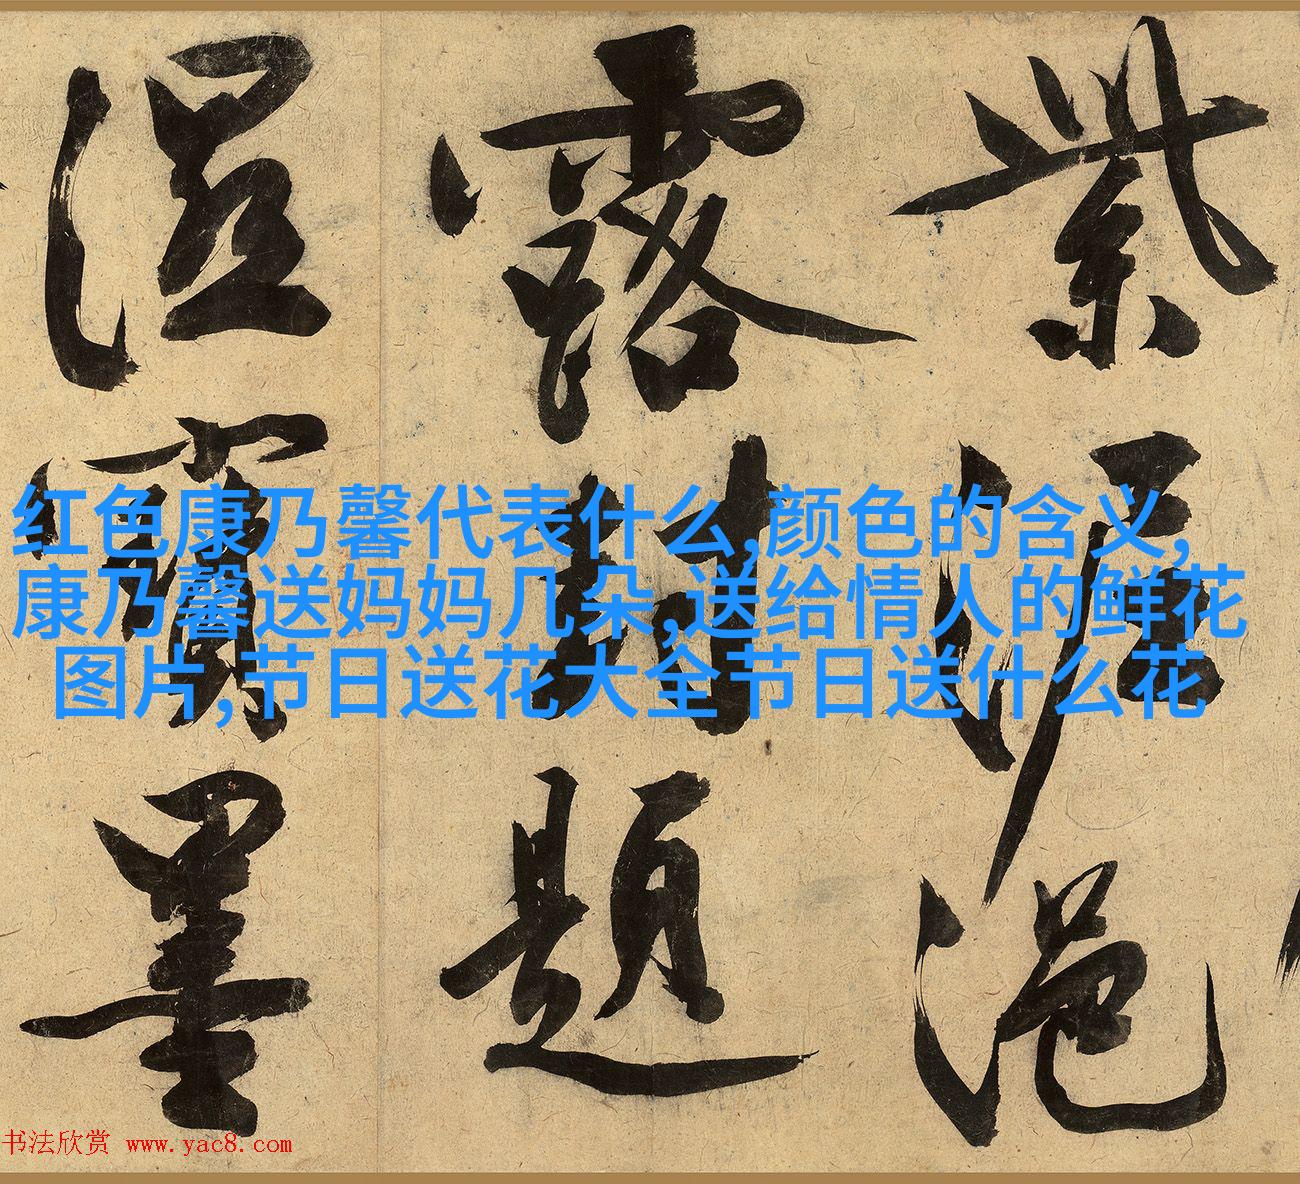 紫泥浥
露封題
濕寶墨
红色康乃馨代表什么,颜色的含义,
康乃馨送妈妈几朵,送给情人的鲜花
图片,节日送花大全节日送什么花
书法欣赏 www.yac8.com